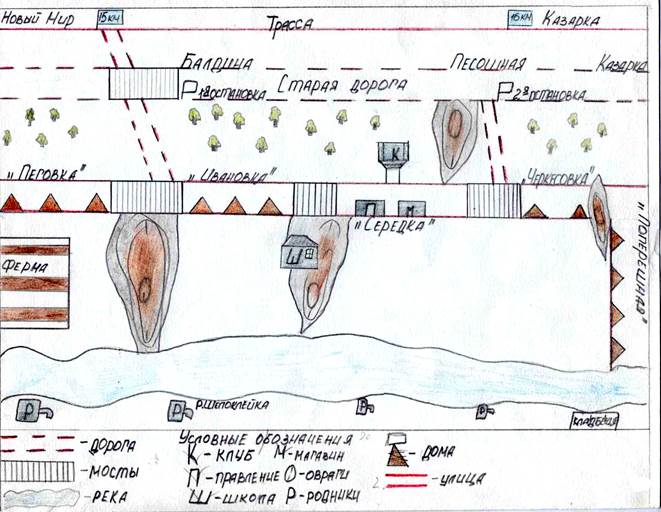 Новый Мир 15 км Трасса 16 км Казарка
Балдина Песошная Казарка
Р 1я остановка Старая дорога Р 2я остановка
К
„Пеговка" „Ивановка" „Черкесовка"
П М
„Середка"
„Поперешная"
Ферма
Ш
Р Р р.Шепоклейка Р Р кладбище
Условные обозначения
- дорога К - клуб М - магазин - дома
- мосты П - правление О - овраги - улица
- река Ш - школа Р - родники